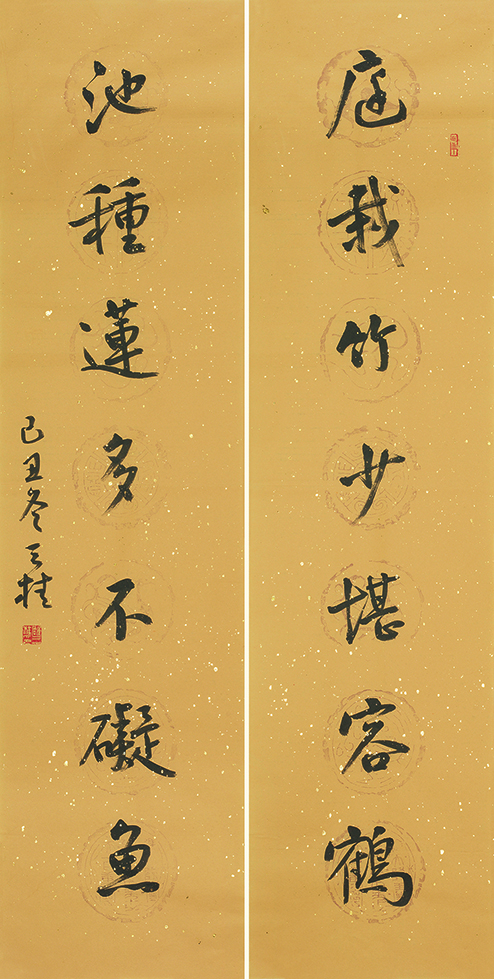 庭栽竹少堪容鶴
池種蓮多不礙魚
己丑冬天桂